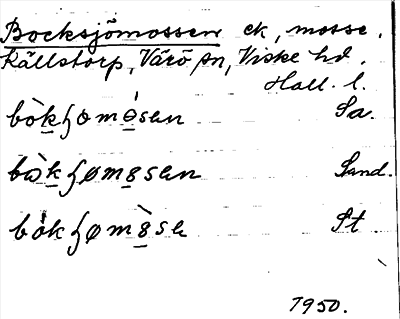 Bocksjömossen ek, mosse.
Källstorp, Värö sn, Viske hd.
Hall. l.
bò̀kʃømósen Sa.
bòkʃømɞsen Sand.
bókʃømɞ̀se St
1950.